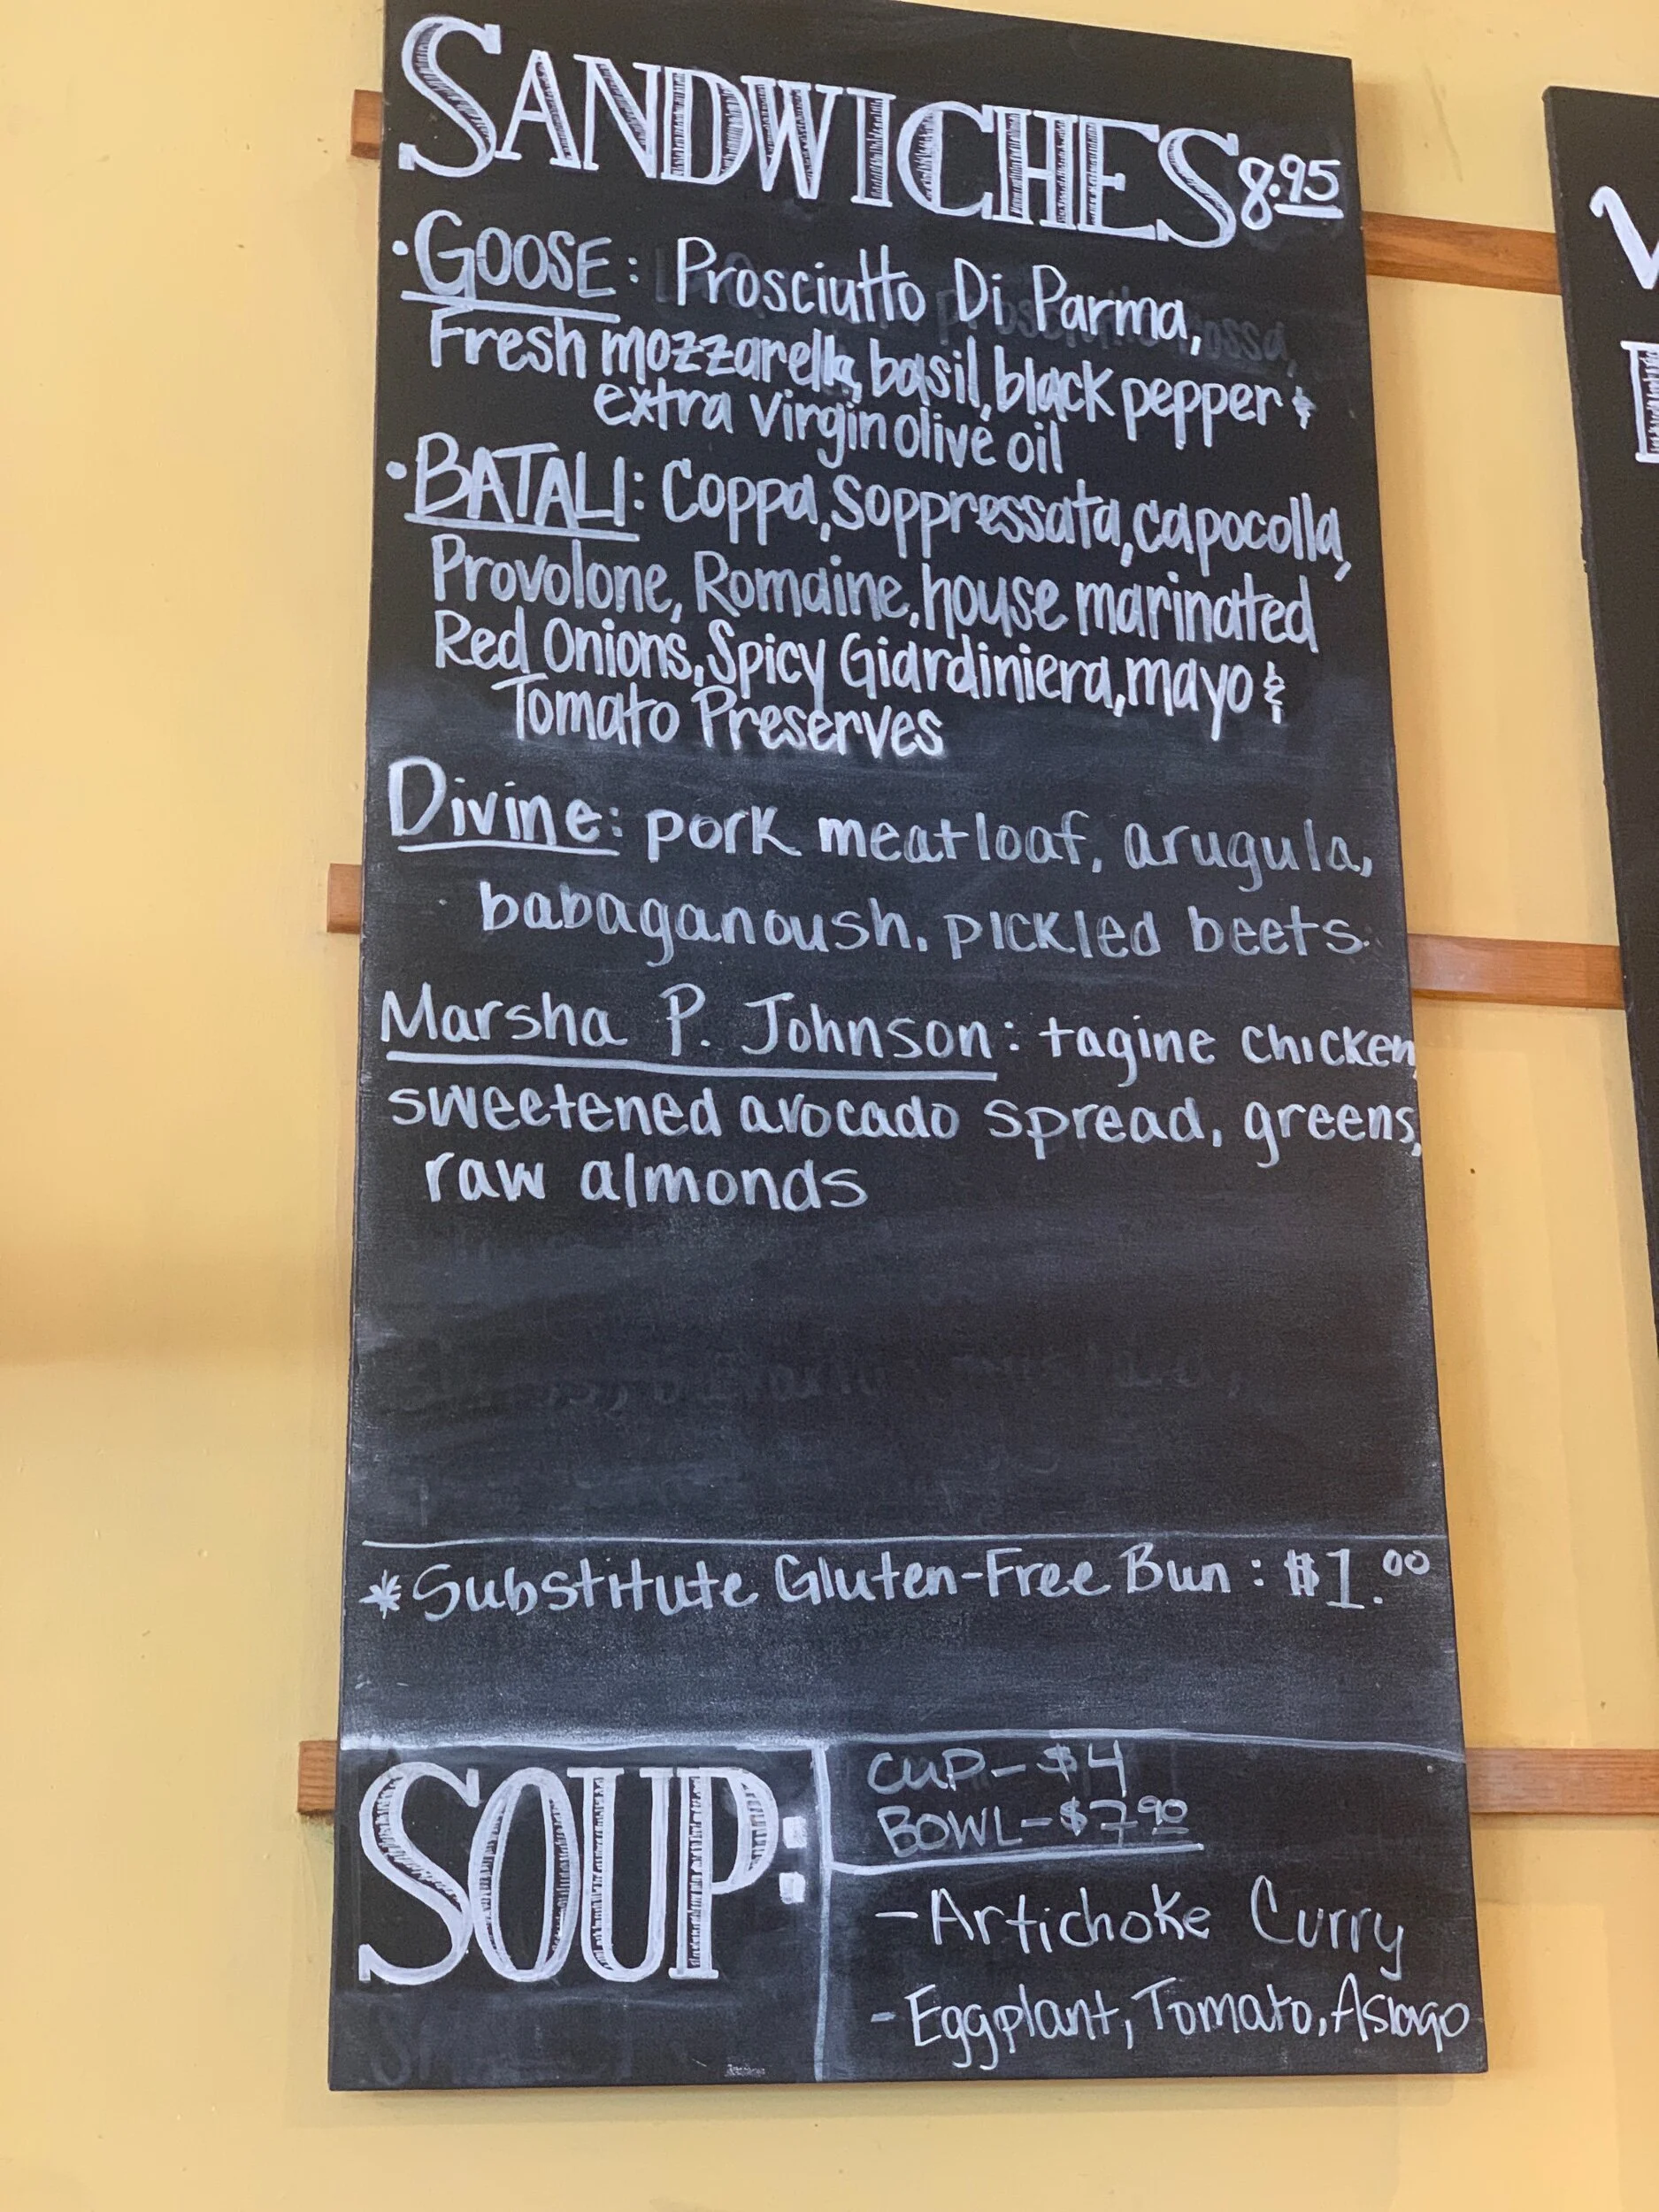 SANDWICHES 8.95
• GOOSE: Prosciutto Di Parma,
Fresh mozzarella, basil, black pepper &
extra virgin olive oil
• BATALI: Coppa, Soppressata, capocolla,
Provolone, Romaine, house marinated
Red Onions, Spicy Giardiniera, mayo &
Tomato Preserves
Divine: pork meatloaf, arugula,
babaganoush. pickled beets.
Marsha P. Johnson: tagine chicken,
sweetened avocado spread, greens,
raw almonds
*Substitute Gluten-Free Bun: $1.00
SOUP:
CUP-$4
BOWL-$7.90
-Artichoke Curry
-Eggplant, Tomato, Asiago